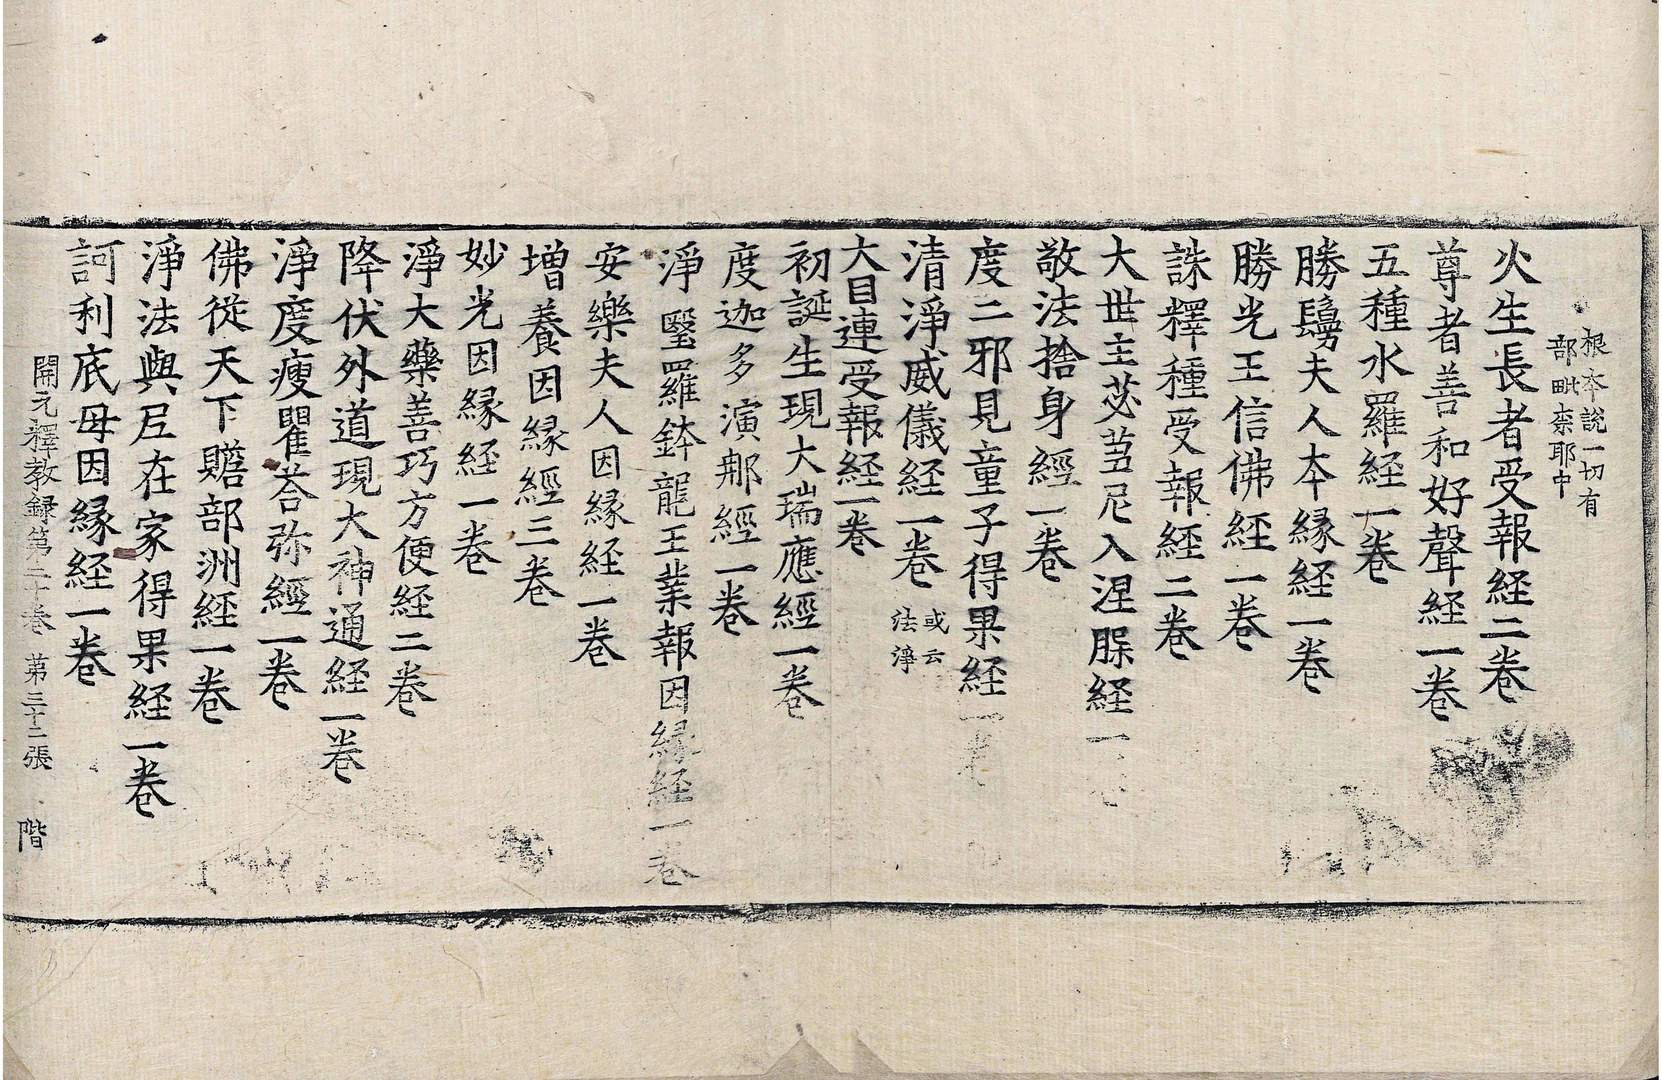 根本說一切有
部毗柰耶中
火生長者受報経二卷
尊者善和好聲経一卷
五種水羅経一卷
勝鬘夫人本縁経一卷
勝光王信佛経一卷
誅釋種受報経二卷
大世主苾蒭尼入涅槃経一卷
敬法捨身經一卷
度二邪見童子得果経一卷
清淨威儀経一卷 或云
法淨
大目連受報経一卷
初誕生現大瑞應經一卷
度迦多演那經一卷
淨毉羅鉢龍王業報因縁経一卷
安樂夫人因縁経一卷
增養因縁經三卷
妙光因縁経一卷
淨大藥善巧方便経二卷
降伏外道現大神通経一卷
淨度瘦瞿荅弥經一卷
佛從天下贍部洲経一卷
淨法與尼在家得果経一卷
訶利底母因縁経一卷
開元釋教録第二十卷 第三十二張 階